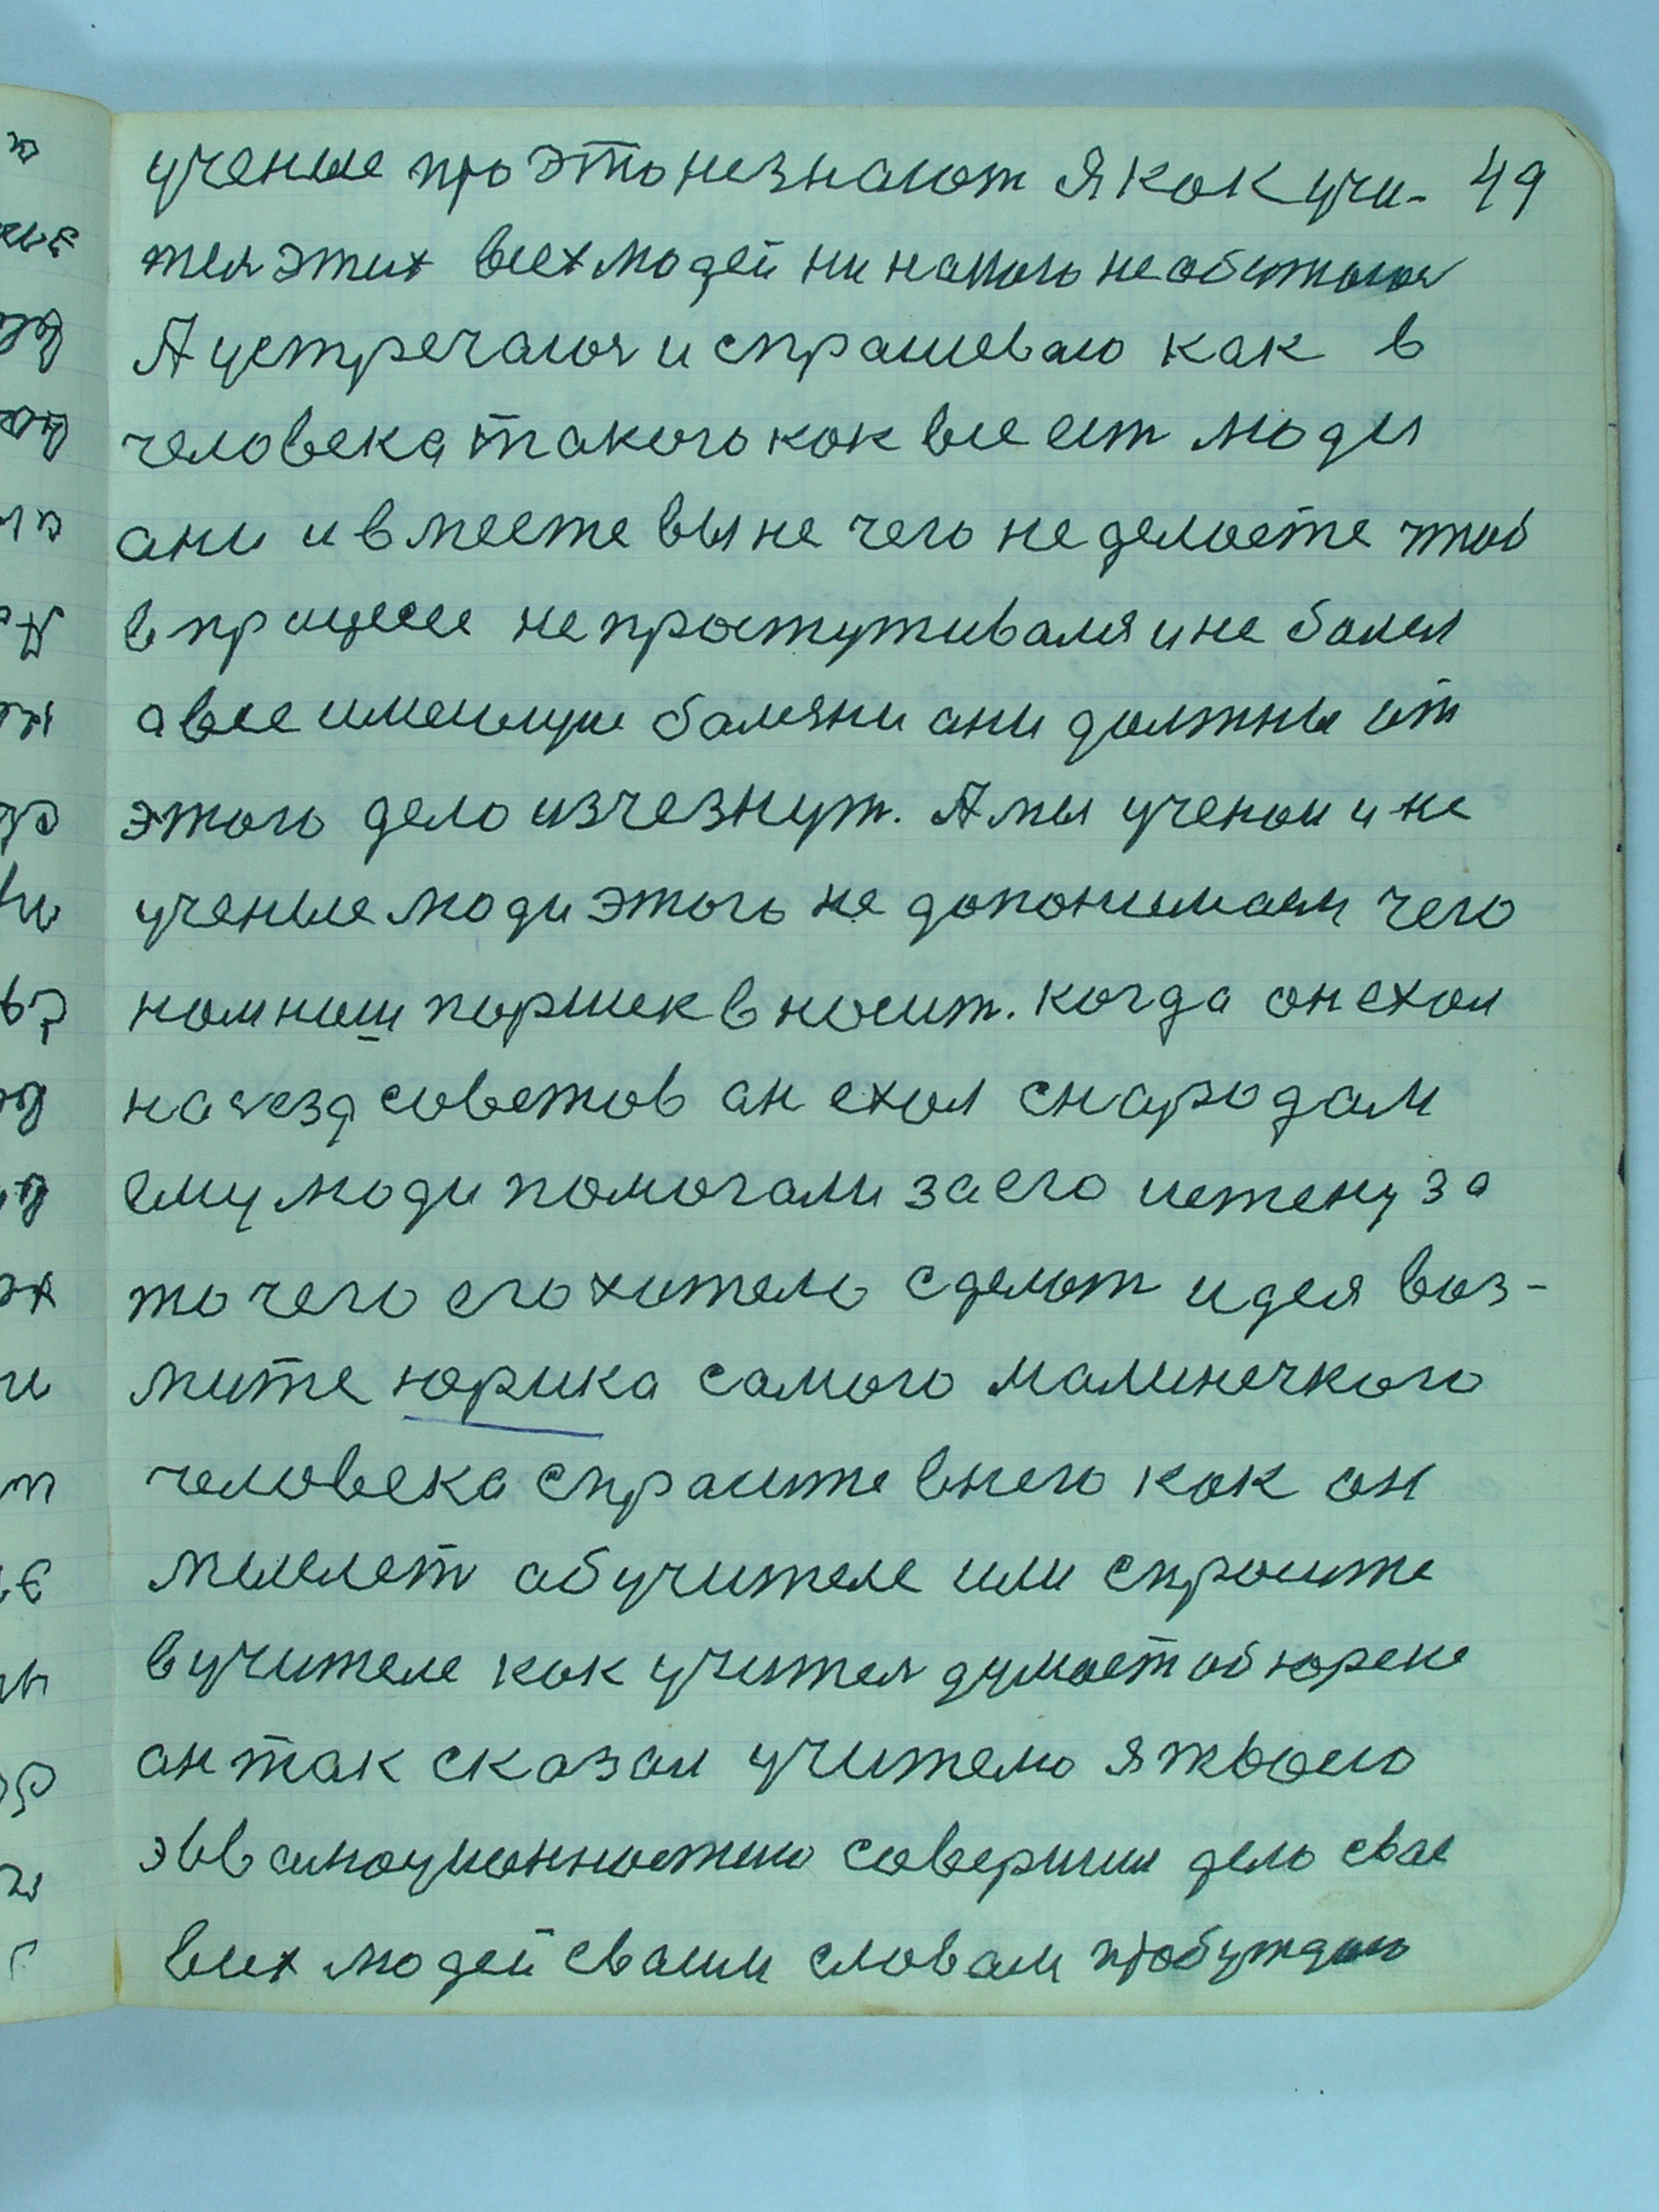 ученые про это незнают Я как учи- 49
теля этих всех людей ни накого необижаюсь
А устречаюся и спрашеваю как в
человека такого как все ест люди
ани и вместе вы не чего не делаете чтоб
в працессе не простуживался и не болел
а все имеющие болячки ани должны от
этого дело изчезнут. А мы ученаи и не
ученые люди этого не допонимаем чего
нам наш паршек вносит. когда он ехал
на сьезд советов ан ехал снародам
ему люди помогали за его истену за
то чего его хители сделат идея воз-
мите юрика самого малинечкого
человека спрасите в него как он
мыслет об учителе или спросите
в учителе как учитель думает об юреке
ан так сказал учителю я твоею
совершил дело свае
всех людей сваим словам пробуждаю